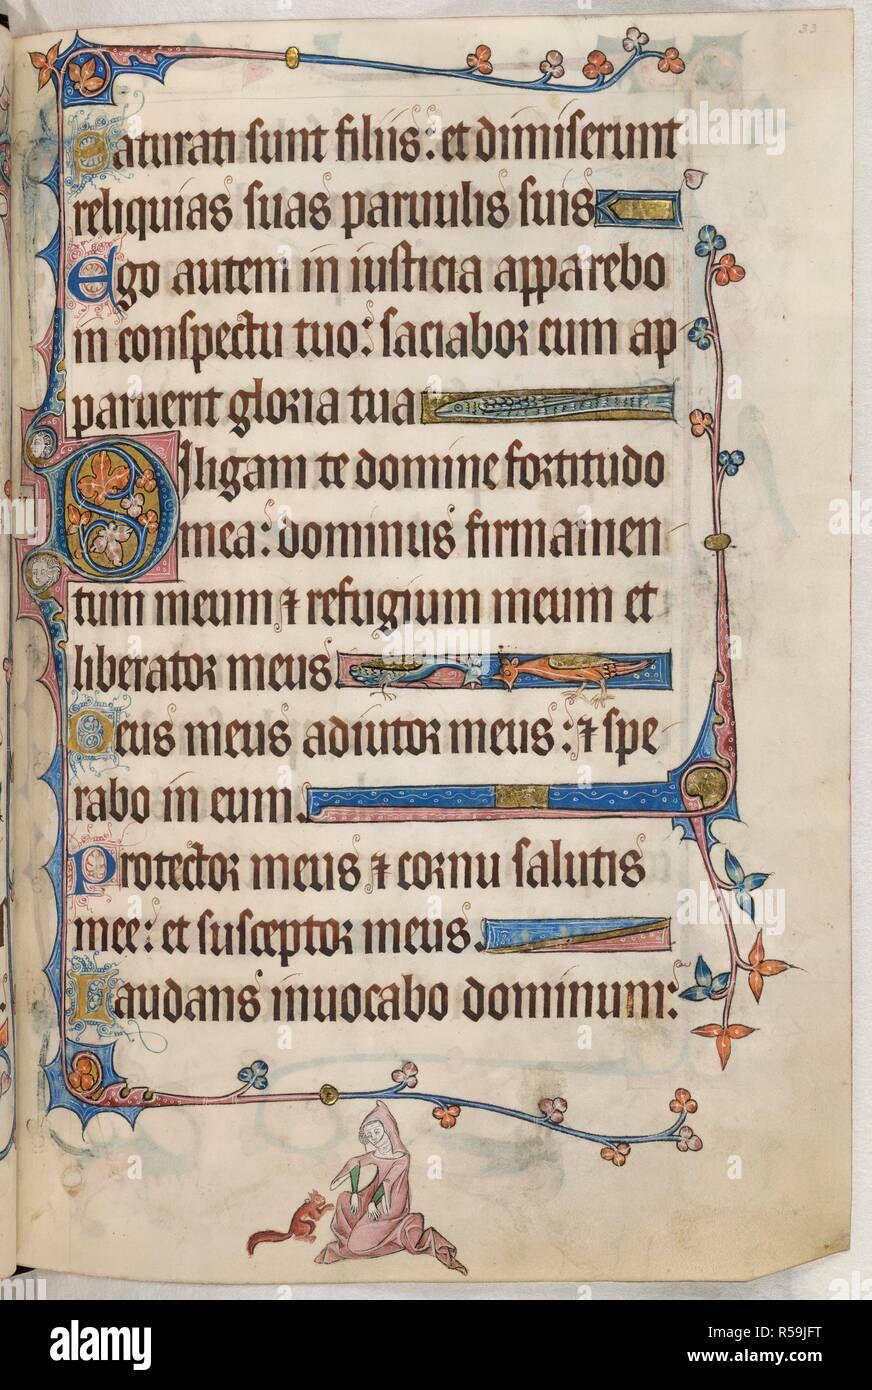 33
Saturati sunt filiis: et dimiserunt
reliquias suas paruulis suis
Ego autem in iusticia apparebo
in conspectu tuo: saciabor cum ap
paruerit gloria tua
Diligam te domine fortitudo
mea: dominus firmamen
tum meum ⁊ refugium meum et
liberator meus.
Deus meus adiutor meus: ⁊ spe
rabo in eum.
Protector meus ⁊ cornu salutis
mee: et susceptor meus.
Laudans inuocabo dominum:
alamy
Image ID: R59JFT
www.alamy.com